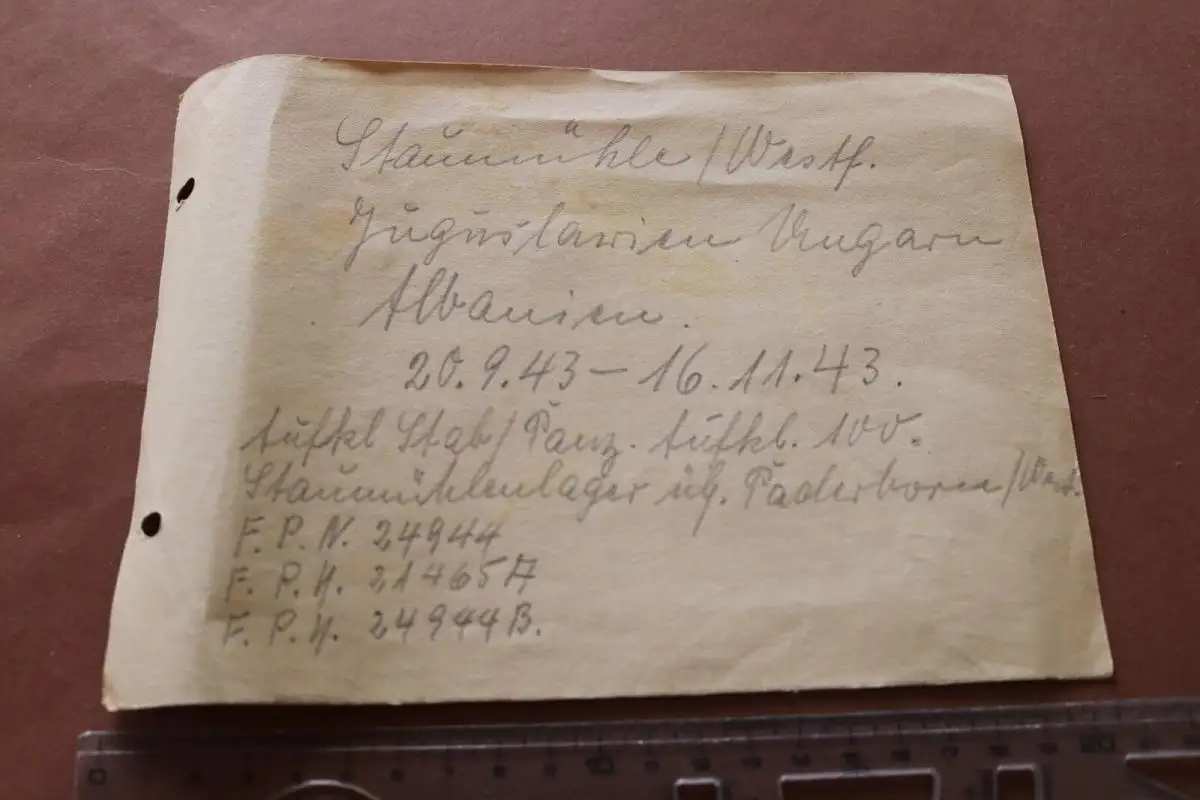 Staumühle / Westf.
Juguslawien Ungarn
Albanien.
20.9.43 – 16.11.43.
Aufkl Stab / Panz. Aufkl. 100.
Staumühlenlager üb. Paderborn / West.
F. P. N. 24944
F. P. N. 21465 A
F. P. N. 24944 B.
0 10 20